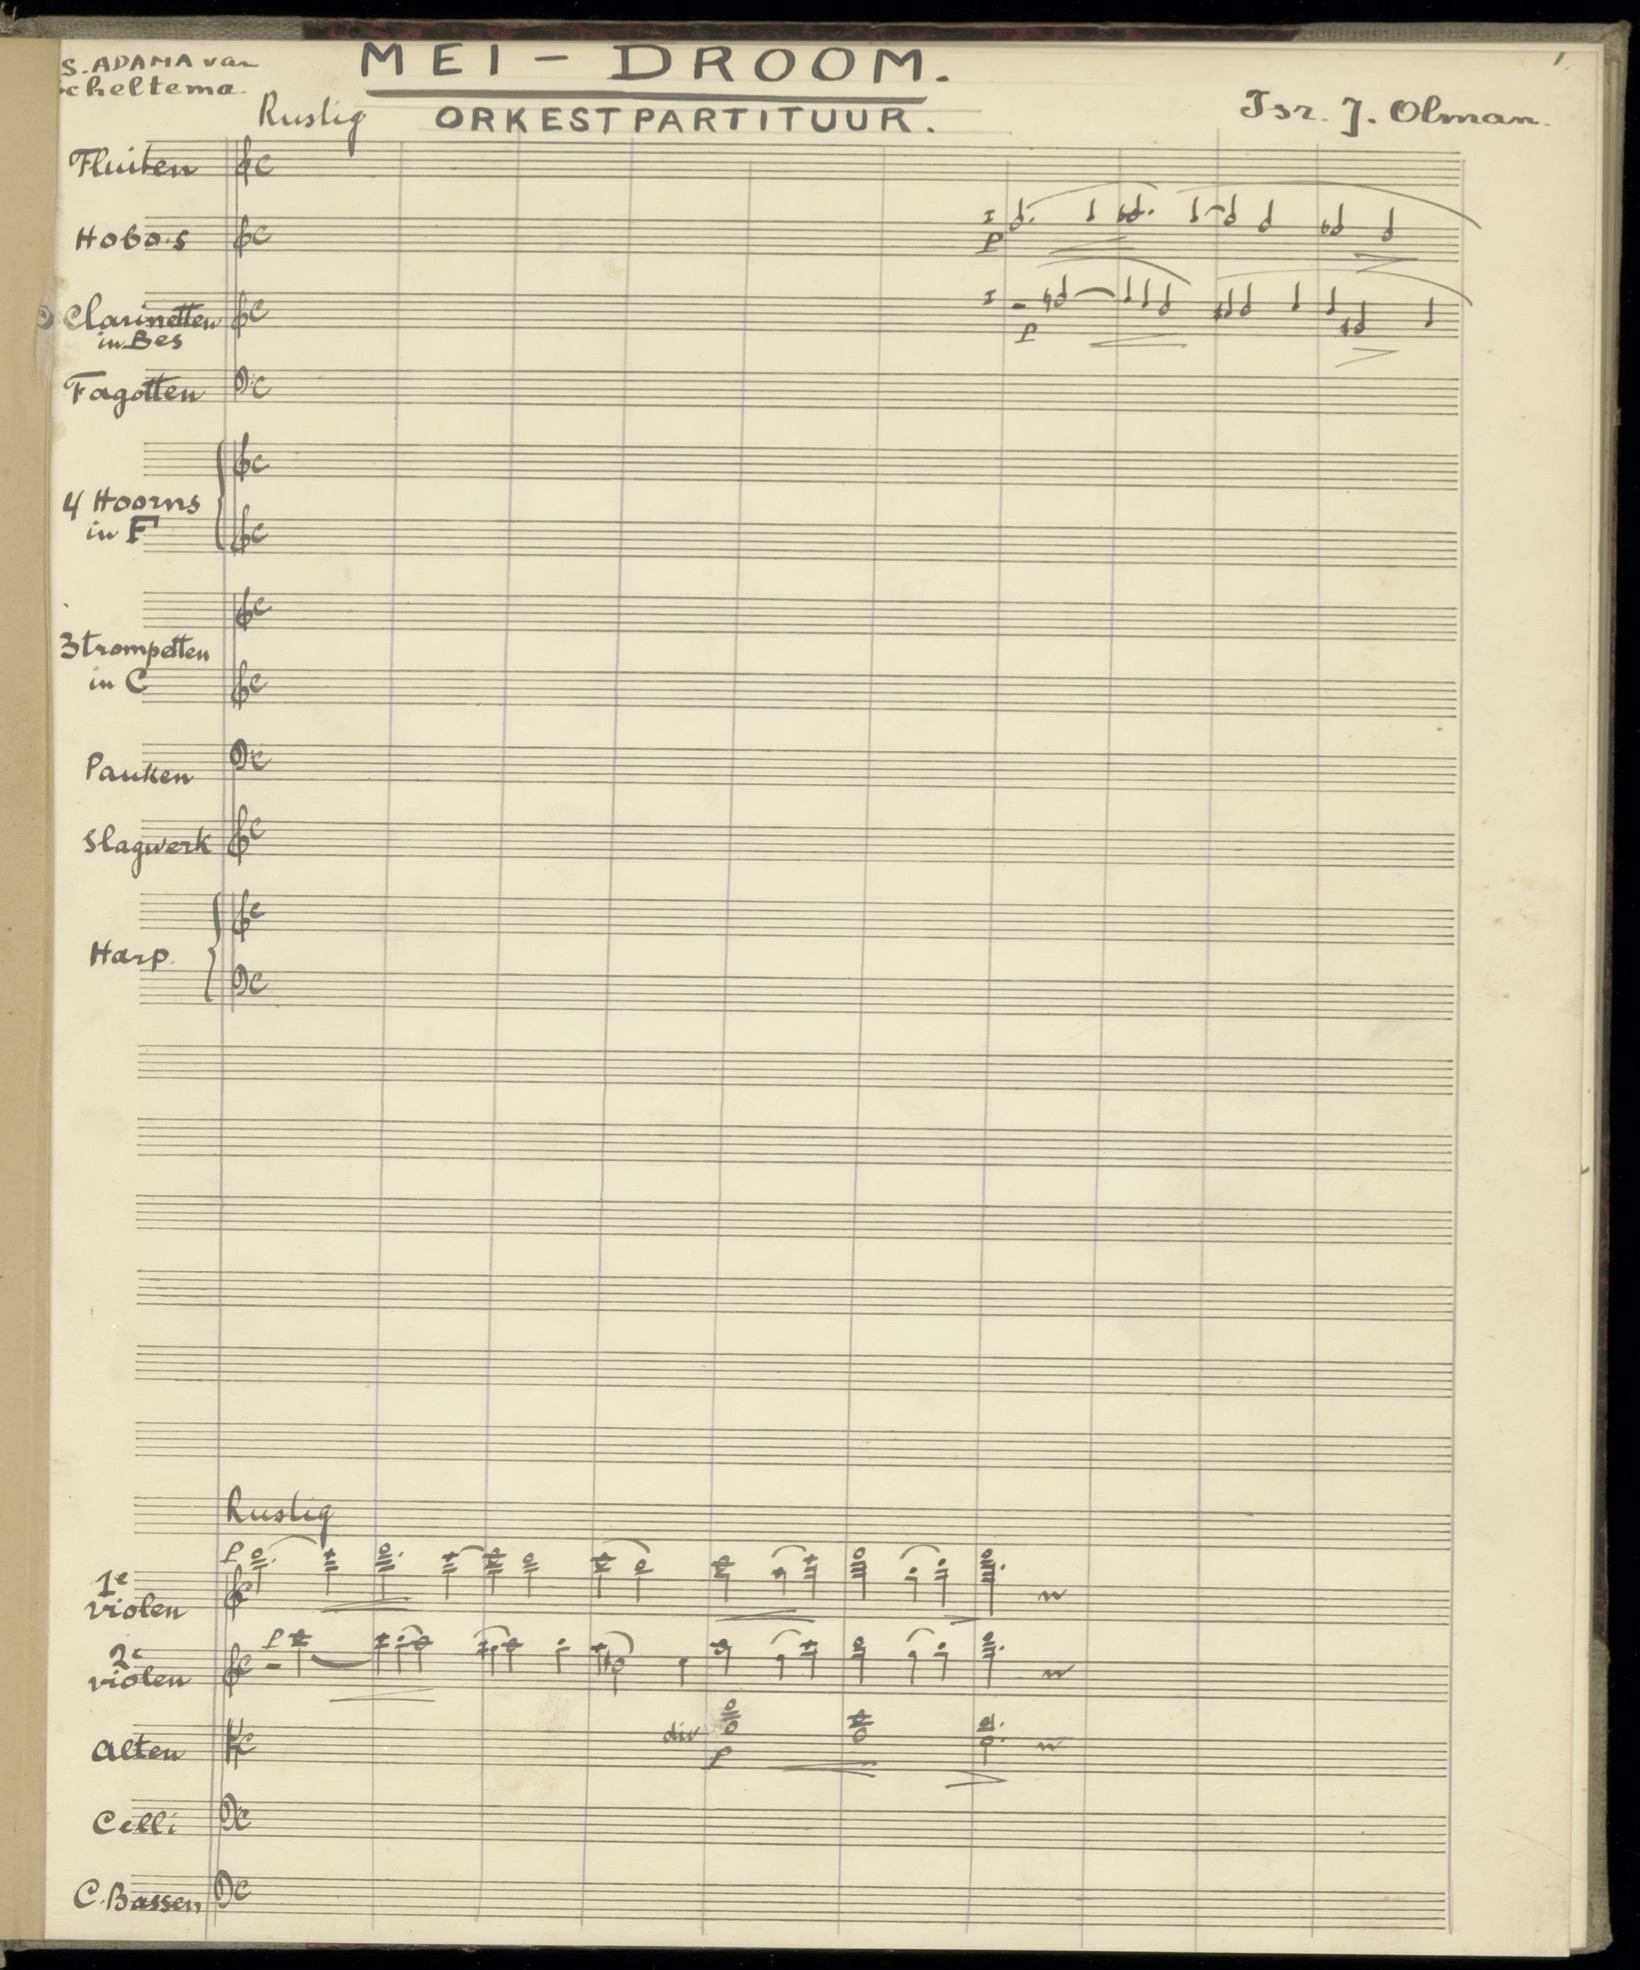 S. ADAMA van
cheltema.
MEI - DROOM.
1.
Rustig
ORKESTPARTITUUR.
Isr. J. Olman.
Fluiten
Hobo's
I
p
Clarinetten
in Bes
I
p
Fagotten
4 Hoorns
in F
3 trompetten
in C
Pauken
Slagwerk
Harp.
Rustig
p
1e
violen
p
2e
violen
div
p
Alten
Celli
C. Bassen